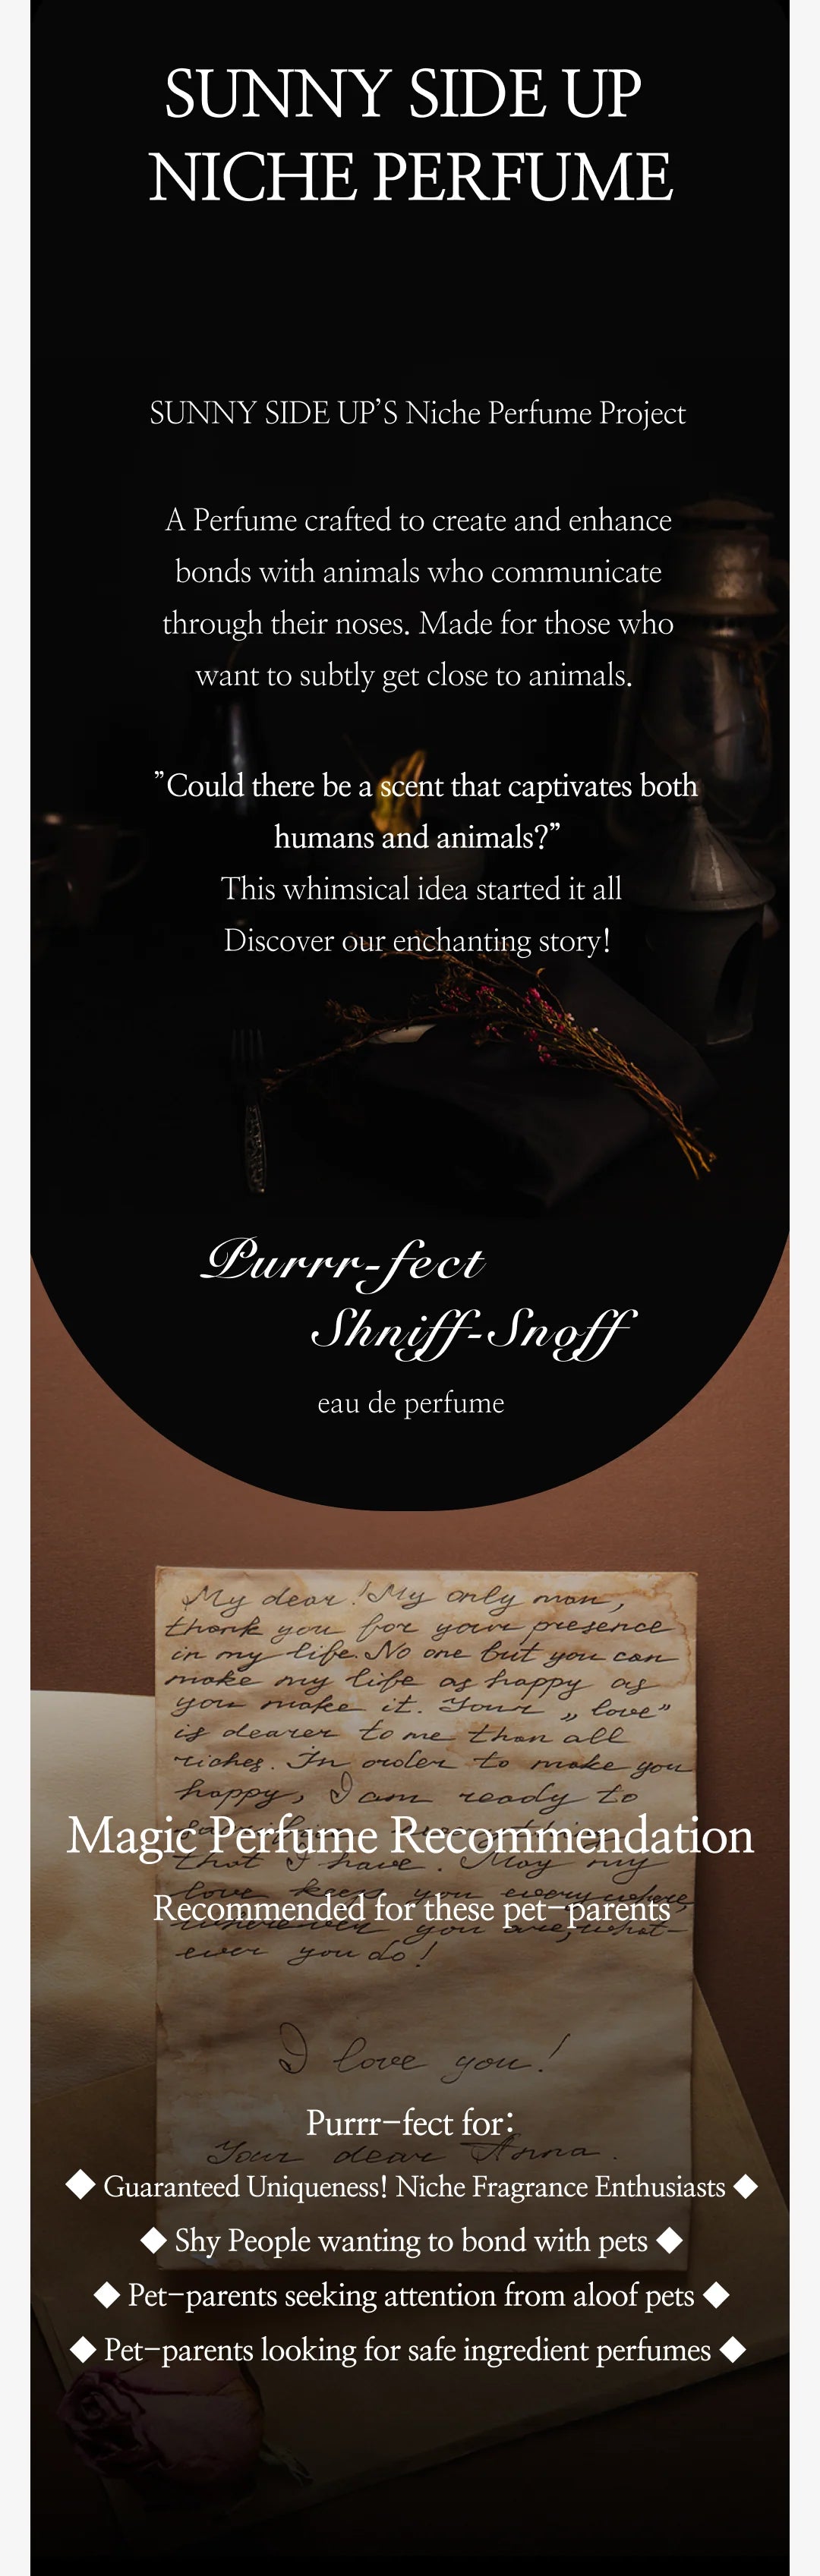 SUNNY SIDE UP
NICHE PERFUME
SUNNY SIDE UP’S Niche Perfume Project
A Perfume crafted to create and enhance
bonds with animals who communicate
through their noses. Made for those who
want to subtly get close to animals.
”Could there be a scent that captivates both
humans and animals?”
This whimsical idea started it all
Discover our enchanting story!
Purrr-fect
Shniff-Snoff
eau de perfume
My dear! My only man,
thank you for your presence
in my life. No one but you can
make my life as happy as
you make it. Your „love”
is dearer to me than all
riches. In order to make you
happy, I am ready to
Magic Perfume Recommendation
that I have. May my
love keeps you everywhere,
Recommended for these pet-parents
wherever you are, what-
ever you do!
I love you!
Purrr-fect for:
Your dear Anna.
◆ Guaranteed Uniqueness! Niche Fragrance Enthusiasts ◆
◆ Shy People wanting to bond with pets ◆
◆ Pet-parents seeking attention from aloof pets ◆
◆ Pet-parents looking for safe ingredient perfumes ◆